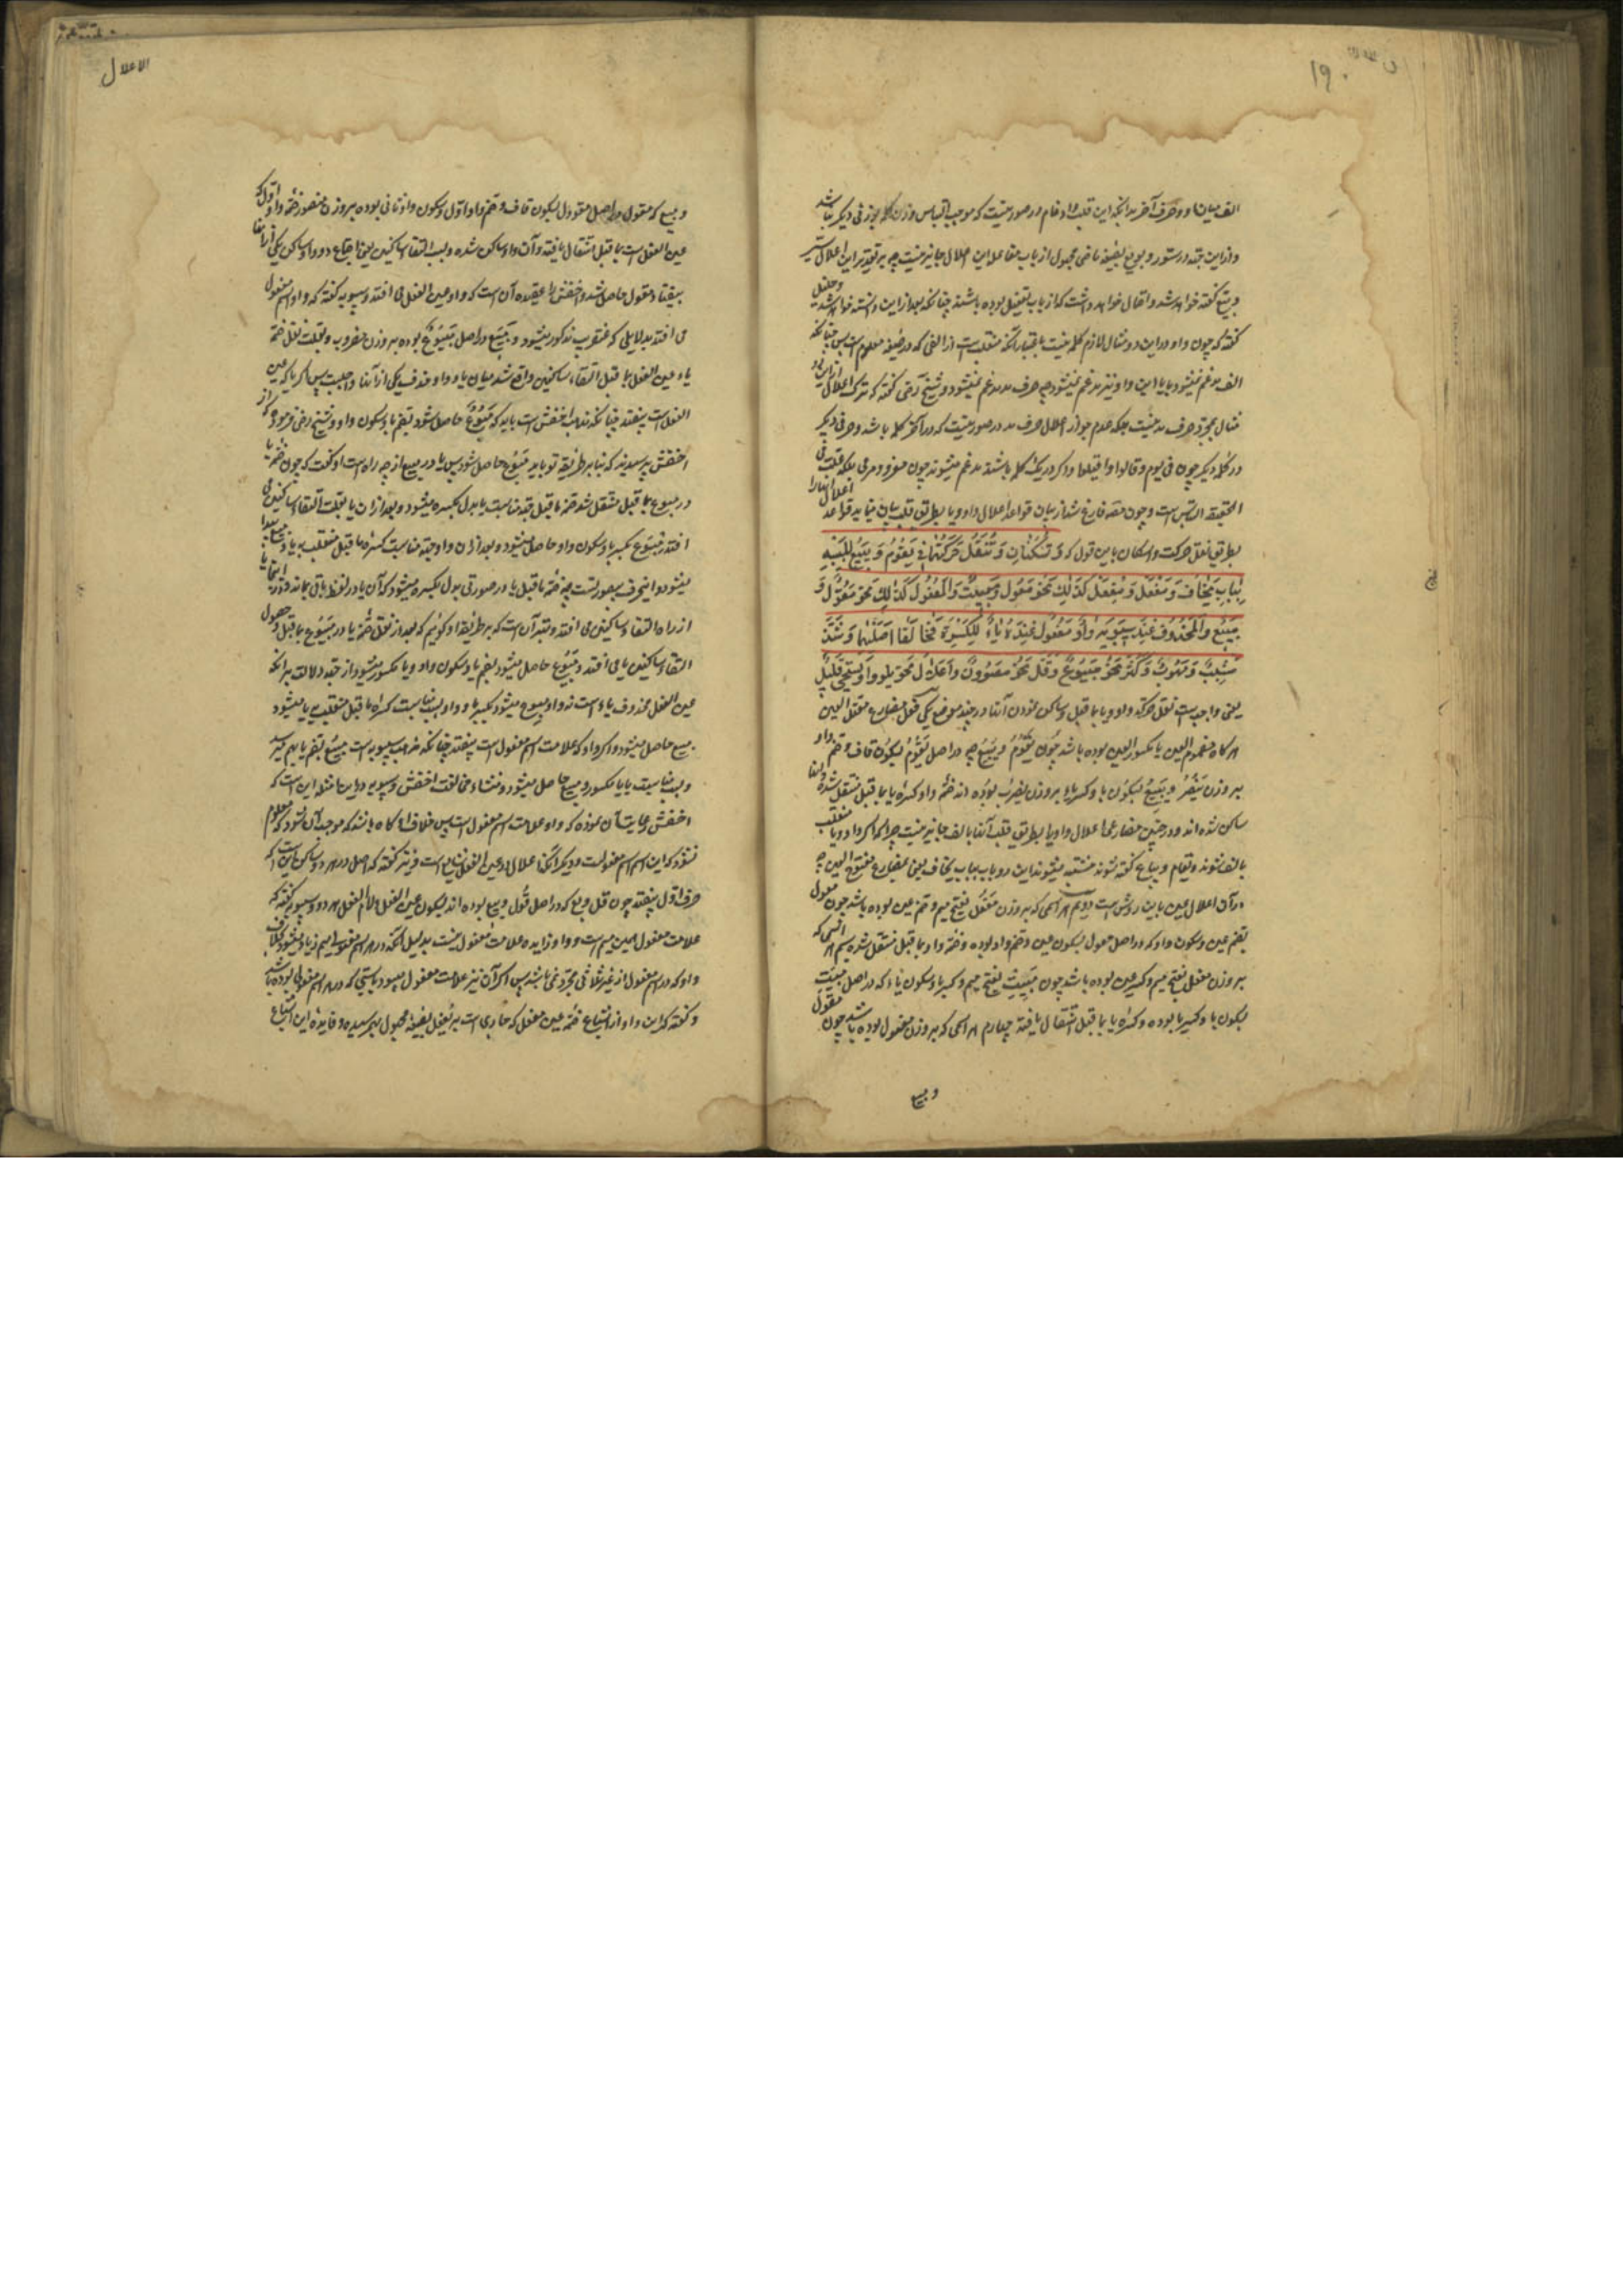 ۱۹۰
الف میان دو حرف آخر بدانکه این قلب و ادغام در صورتیست که موجب التباس وزن کلمه بوزنی دیگر نباشد
و ازین جهة در ستور و بویع بصیغه ماضی مجهول از باب مفاعله این اعلال جایز نیست چه بر تقدیر این اعلال سیر
و بیع گفته خواهد شد و احتمال خواهد داشت که از باب تفعیل بوده باشند چنانکه بعد ازاین دانسته خواهد شد
گفته که چون واو در این دو مثال لازم کلمه نیست باعتبار آنکه منقلب است از الفی که در صیغه معلوم است پس چنانکه
الف مدغم نمیشود بیا این واو نیز مدغم نمیشود چه حرف مد مدغم نمیشود و شیخ رضی گفته که ترک اعلال ازین دو
مثال بمجرد حرف مد نیست بلکه عدم جواز اعلال حرف مد در صورتیست که در آخر کلمه باشد و حرفی دیگر
در کلمه دیگر چون فی یوم و قالوا و اقبلوا و اگر در یک کلمه باشند مدغم میشوند چون مغزو و مرمی بلکه علت فی
الحقیقه التباس است و چون مصنف فارغ شد از بیان قواعد اعلال واو و یا بطریق قلب بیان مینماید قواعد
اعلال آنها را
بطریق نقل حرکت و اسکان باین قول که وَ تُسَکَّنٰانِ وَ تُنْقَلُ حَرَکَتُهُمٰا فِی یَقُوْمُ وَ یَبِیْعُ لِلَبْسِهِ
بِبٰابِ یَخٰافُ وَ مَفْعُلٌ وَ مَفْعِلٌ کَذٰلِکَ نَحْوُ مَعُوْلٍ وَ مَبِیْتٌ وَ الْمَفْعُوْلُ کَذٰلِکَ نَحْوُ مَقُوْلٌ وَ
مَبِیْعٌ وَ الْمَحْذُوفُ عِنْدَ سِیبَوَیْهِ وٰاوُ مَفْعُوْلٍ عِنْدَهُ یٰاءٌ لِلکَسْرَةِ فَخٰالَفٰا اَصْلَیْهِمٰا وَ شَذَّ
مَشِیْبٌ وَ مَهُوْبٌ وَ کَثُرَ نَحْوُ مَبْیُوْعٌ وَ قَلَّ نَحْوُ مَصْوُوْنٌ وَ اَعْلٰالُ نَحْوِ یَلْوُوْا وَ یَسْتَحْیِی قَلِیْلٌ
یعنی واجب است نقل حرکت واو و یا بما قبل و ساکن نمودن آنها در چند موضع یکی فعل مضارع معتل العین
هرگاه مضموم العین یا مکسور العین بوده باشد چون یَقُوْمُ وَ یَبِیْعُ چه در اصل یَقْوُمُ بسکون قاف و ضم واو
بر وزن یَنْصُرُ و یَبْیِعُ بسکون با و کسر یا بر وزن یضرب بوده اند ضمّه واو و کسره یا بما قبل منتقل شده و آنها
ساکن شده اند و در چنین مضارعی اعلال واو یا بطریق قلب آنها بالف جایز نیست چرا که اگر واو و یا منقلب
بالف شوند و یقام و یباع گفته شوند مشتبه میشوند این دو باب بباب یخاف یعنی بمضارع مفتوح العین چه
در آن اعلال عین باین روش است دویم هر اسمی که بر وزن مَفْعُل بفتح میم و ضم عین بوده باشد چون معول
بضم عین و سکون واو که در اصل معول بسکون عین و ضم واو بوده و ضمّه واو بما قبل منتقل شده سیم هر اسمی که
بر وزن مفعل بفتح میم و کسر عین بوده باشد چون مَبِیْت بفتح میم و کسر با و سکون یاء که در اصل مبیت
بسکون با و کسر یا بوده و کسره یا بما قبل انتقال یافته چهارم هر اسمی که بر وزن مفعول بوده باشد چون مقول
و مبیع
الاعلال
و مبیع که مقول در اصل مقوول بسکون قاف و ضم واو اوّل و سکون واو ثانی بوده بر وزن منصور ضمّه واو اوّل که
عین الفعل است بما قبل انتقال یافته و آن واو ساکن شده و بسبب التقاء ساکنین یعنی اجتماع دو واو ساکن یکی از آنها
بیفتاد مقول حاصل شد و اخفش را عقیده آن است که واو عین الفعل می افتد و سیبویه گفته که واو اسم مفعول
می افتد بدلایلی که عنقریب مذکور میشود و مَبِیْع در اصل مَبْیُوْعٌ بوده بر وزن مضروب و بعلت نقل ضمّه
یاء عین الفعل بما قبل التقاء ساکنین واقع شد میان یا و واو و حذف یکی از آنها واجب است پس اگر یا که عین
الفعل است بیفتد چنانکه مذهب اخفش است باید که مَبُوْعٌ حاصل شود بضم با و سکون واو و شیخ رضی فرموده که از
اخفش پرسیدند که بنابر طریقه تو باید مَبُوْع حاصل شود پس یا در مبیع از چه راه است او گفت که چون ضمّه یا
در مبیوع بما قبل منتقل شد ضمّه ما قبل بجهة مناسبت یا بدل بکسره میشود و بعد از آن یا بعلت التقاء ساکنین می
افتد مَبِوْع بکسر با و سکون واو حاصل میشود و بعد از آن واو بجهة مناسبت کسره ما قبل منقلب بیا
میشود
از راه التقاء ساکنین می افتد
التقاء ساکنین یا می افتد و مَبُوْع حاصل میشود بضم با و سکون واو و با مکسور میشود از جهة دلالت بر آنکه
عین الفعل محذوف یاء است نه واو مبوع میشود بکسر با و واو بسبب مناسبت کسره ما قبل منقلب بیا میشود
مبیع حاصل میشود و اگر واو که علامت اسم مفعول است بیفتد چنانکه مذهب سیبویه است مبیُع بضم با بهم میرسد
و بسبب مناسبت یا با مکسور و مبیع حاصل میشود و منشاء مخالفت اخفش و سیبویه در این مسئله این است که
اخفش رعایت آن نموده که واو علامت اسم مفعول است پس حذف او گاه باشد که موجب آن شود که معلوم
نشود که این اسم اسم مفعولست
حرف اوّل بیفتد چون قل و بع که در اصل قُوْل و بیع بوده اند بسکون عین الفعل و لام الفعل هر دو و سیبویه گفته که
علامت مفعول همین میم است و واو زایده علامت مفعول نیست بدلیل آنکه در هر اسم مفعولی میم زیاد میشود بخلاف
واو که در اسم مفعول از غیر ثلاثی مجرد نمی باشد پس اگر آن نیز علامت مفعول میبود بایستی که در هر اسم مفعولی بوده باشد
و گفته که این واو از اشباع ضمّه عین مفعل که جاری است بر یُفعل بصیغه مجهول بهم رسیده و فایده این اشباع